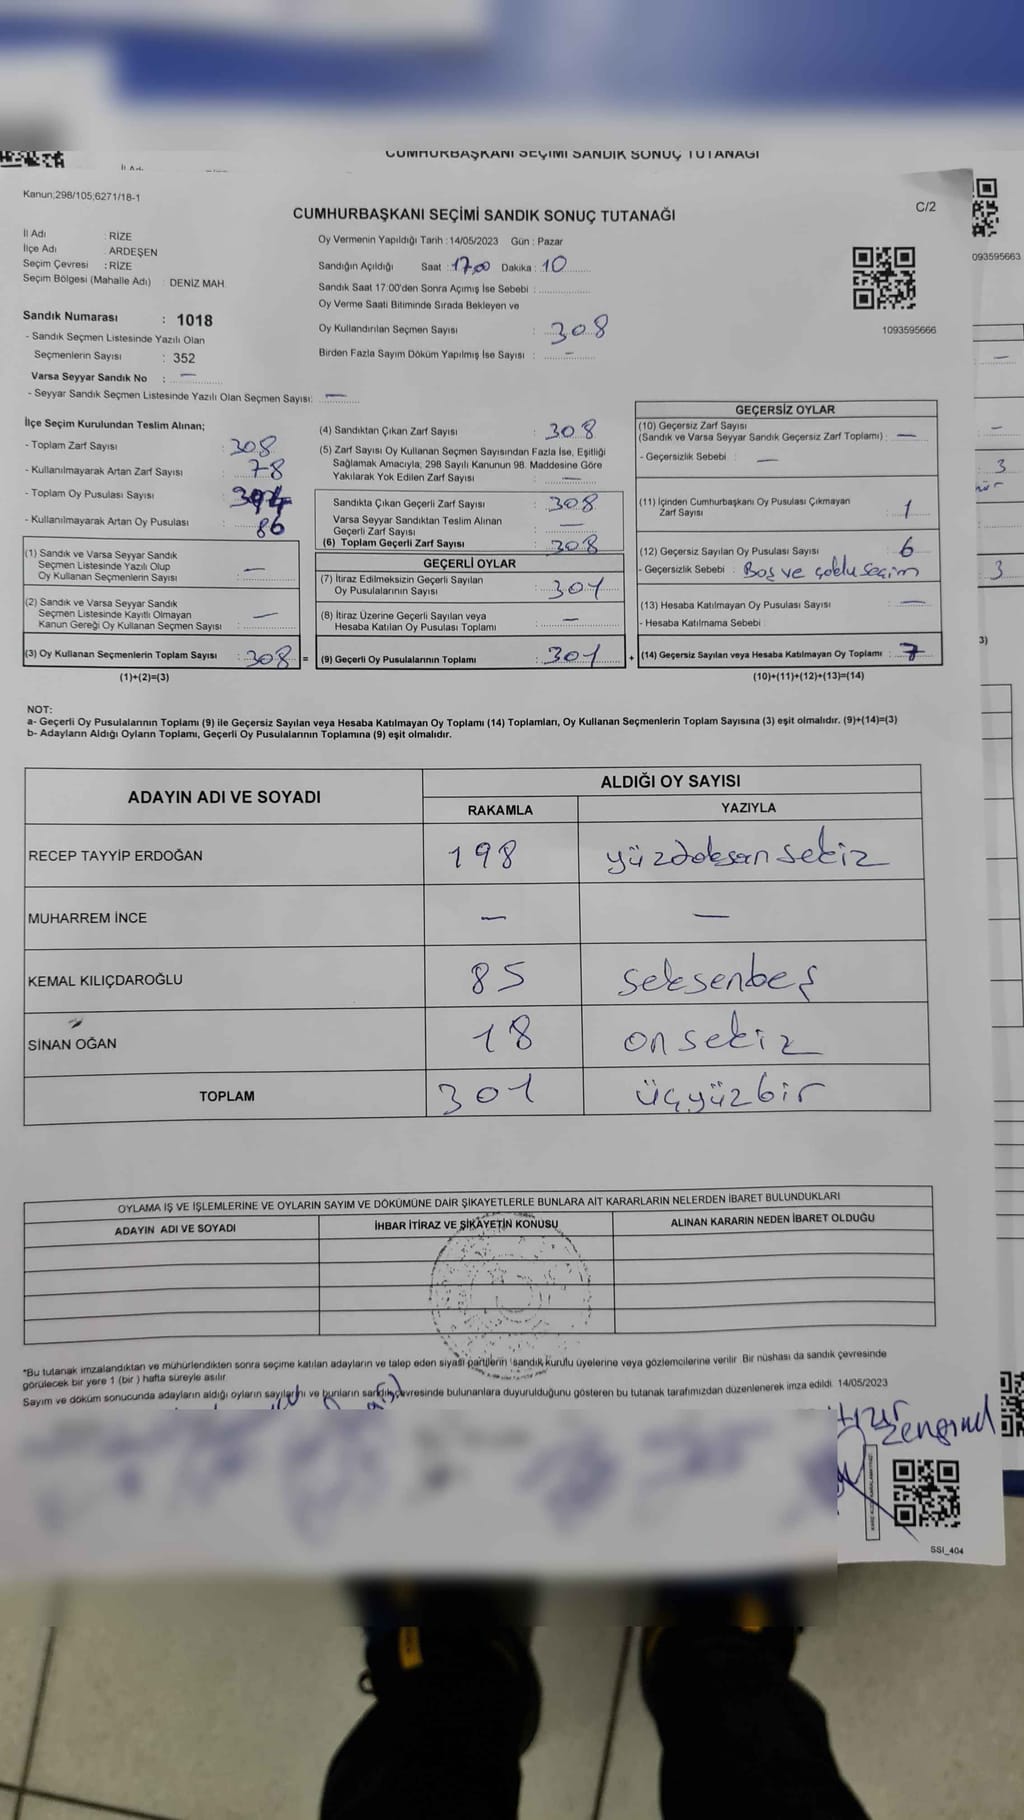 CUMHURBAŞKANI SEÇİMİ SANDIK SONUÇ TUTANAĞI
Kanun;298/105;6271/18-1
C/2
CUMHURBAŞKANI SEÇİMİ SANDIK SONUÇ TUTANAĞI
İl Adı : RİZE
İlçe Adı : ARDEŞEN
Seçim Çevresi : RİZE
Seçim Bölgesi (Mahalle Adı) : DENİZ MAH.
Sandık Numarası : 1018
- Sandık Seçmen Listesinde Yazılı Olan
Seçmenlerin Sayısı : 352
Varsa Seyyar Sandık No : —
- Seyyar Sandık Seçmen Listesinde Yazılı Olan Seçmen Sayısı: —
Oy Vermenin Yapıldığı Tarih : 14/05/2023 Gün : Pazar
Sandığın Açıldığı Saat : 17.00 Dakika : 10
Sandık Saat 17:00'den Sonra Açımış İse Sebebi :
Oy Verme Saati Bitiminde Sırada Bekleyen ve
Oy Kullandırılan Seçmen Sayısı : 308
Birden Fazla Sayım Döküm Yapılmış İse Sayısı : —
1093595666
093595663
İlçe Seçim Kurulundan Teslim Alınan;
- Toplam Zarf Sayısı : 308
- Kullanılmayarak Artan Zarf Sayısı : 78
- Toplam Oy Pusulası Sayısı : 394
- Kullanılmayarak Artan Oy Pusulası : 86
(1) Sandık ve Varsa Seyyar Sandık
Seçmen Listesinde Yazılı Olup
Oy Kullanan Seçmenlerin Sayısı : —
(2) Sandık ve Varsa Seyyar Sandık
Seçmen Listesinde Kayıtlı Olmayan
Kanun Gereği Oy Kullanan Seçmen Sayısı : —
(3) Oy Kullanan Seçmenlerin Toplam Sayısı : 308 =
(1)+(2)=(3)
(4) Sandıktan Çıkan Zarf Sayısı : 308
(5) Zarf Sayısı Oy Kullanan Seçmen Sayısından Fazla İse, Eşitliği
Sağlamak Amacıyla; 298 Sayılı Kanunun 98. Maddesine Göre
Yakılarak Yok Edilen Zarf Sayısı : —
Sandıkta Çıkan Geçerli Zarf Sayısı : 308
Varsa Seyyar Sandıktan Teslim Alınan
Geçerli Zarf Sayısı : —
(6) Toplam Geçerli Zarf Sayısı : 308
GEÇERLİ OYLAR
(7) İtiraz Edilmeksizin Geçerli Sayılan
Oy Pusulalarının Sayısı : 301
(8) İtiraz Üzerine Geçerli Sayılan veya
Hesaba Katılan Oy Pusulası Toplamı : —
(9) Geçerli Oy Pusulalarının Toplamı : 301 +
GEÇERSİZ OYLAR
(10) Geçersiz Zarf Sayısı
(Sandık ve Varsa Seyyar Sandık Geçersiz Zarf Toplamı) : —
- Geçersizlik Sebebi : —
(11) İçinden Cumhurbaşkanı Oy Pusulası Çıkmayan
Zarf Sayısı : 1
(12) Geçersiz Sayılan Oy Pusulası Sayısı : 6
- Geçersizlik Sebebi : Boş ve çoklu seçim
(13) Hesaba Katılmayan Oy Pusulası Sayısı : —
- Hesaba Katılmama Sebebi
(14) Geçersiz Sayılan veya Hesaba Katılmayan Oy Toplamı : 7
(10)+(11)+(12)+(13)=(14)
3
3
3)
NOT:
a- Geçerli Oy Pusulalarının Toplamı (9) ile Geçersiz Sayılan veya Hesaba Katılmayan Oy Toplamı (14) Toplamları, Oy Kullanan Seçmenlerin Toplam Sayısına (3) eşit olmalıdır. (9)+(14)=(3)
b- Adayların Aldığı Oyların Toplamı, Geçerli Oy Pusulalarının Toplamına (9) eşit olmalıdır.
ADAYIN ADI VE SOYADI ALDIĞI OY SAYISI
RAKAMLA YAZIYLA
RECEP TAYYİP ERDOĞAN 198 yüzdoksan sekiz
MUHARREM İNCE — —
KEMAL KILIÇDAROĞLU 85 seksenbeş
SİNAN OĞAN 18 on sekiz
TOPLAM 301 üçyüzbir
OYLAMA İŞ VE İŞLEMLERİNE VE OYLARIN SAYIM VE DÖKÜMÜNE DAİR ŞİKAYETLERLE BUNLARA AİT KARARLARIN NELERDEN İBARET BULUNDUKLARI
ADAYIN ADI VE SOYADI İHBAR İTİRAZ VE ŞİKAYETİN KONUSU ALINAN KARARIN NEDEN İBARET OLDUĞU
*Bu tutanak imzalandıktan ve mühürlendikten sonra seçime katılan adayların ve talep eden siyasi partilerin sandık kurulu üyelerine veya gözlemcilerine verilir. Bir nüshası da sandık çevresinde
görülecek bir yere 1 (bir ) hafta süreyle asılır.
Sayım ve döküm sonucunda adayların aldığı oyların sayılarını ve bunların sandık çevresinde bulunanlara duyurulduğunu gösteren bu tutanak tarafımızdan düzenlenerek imza edildi. 14/05/2023
SSI_404